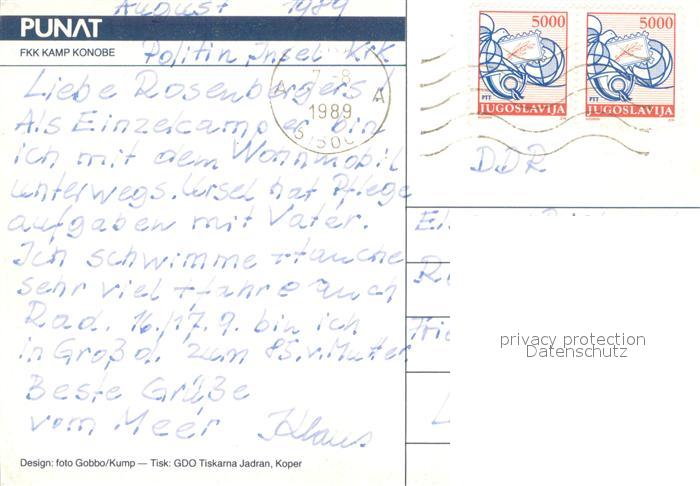 August 1989
PUNAT
FKK KAMP KONOBE
Insel Krk
Liebe Rosenbergers!
Als Einzelcamper bin
ich mit dem Wohnmobil
unterwegs. Ursel hat Pflege
aufgaben mit Vater.
Ich schwimme + tauche
sehr viel + fahre auch
Rad. 16./17.9. bin ich
in Großd. zum 85. v. Mutter
Beste Grüße
vom Meer Klaus
Design: foto Gobbo/Kump — Tisk: GDO Tiskarna Jadran, Koper
7-8
A A
1989
5000
PTT
JUGOSLAVIJA
5000
PTT
JUGOSLAVIJA
DDR
privacy protection
Datenschutz